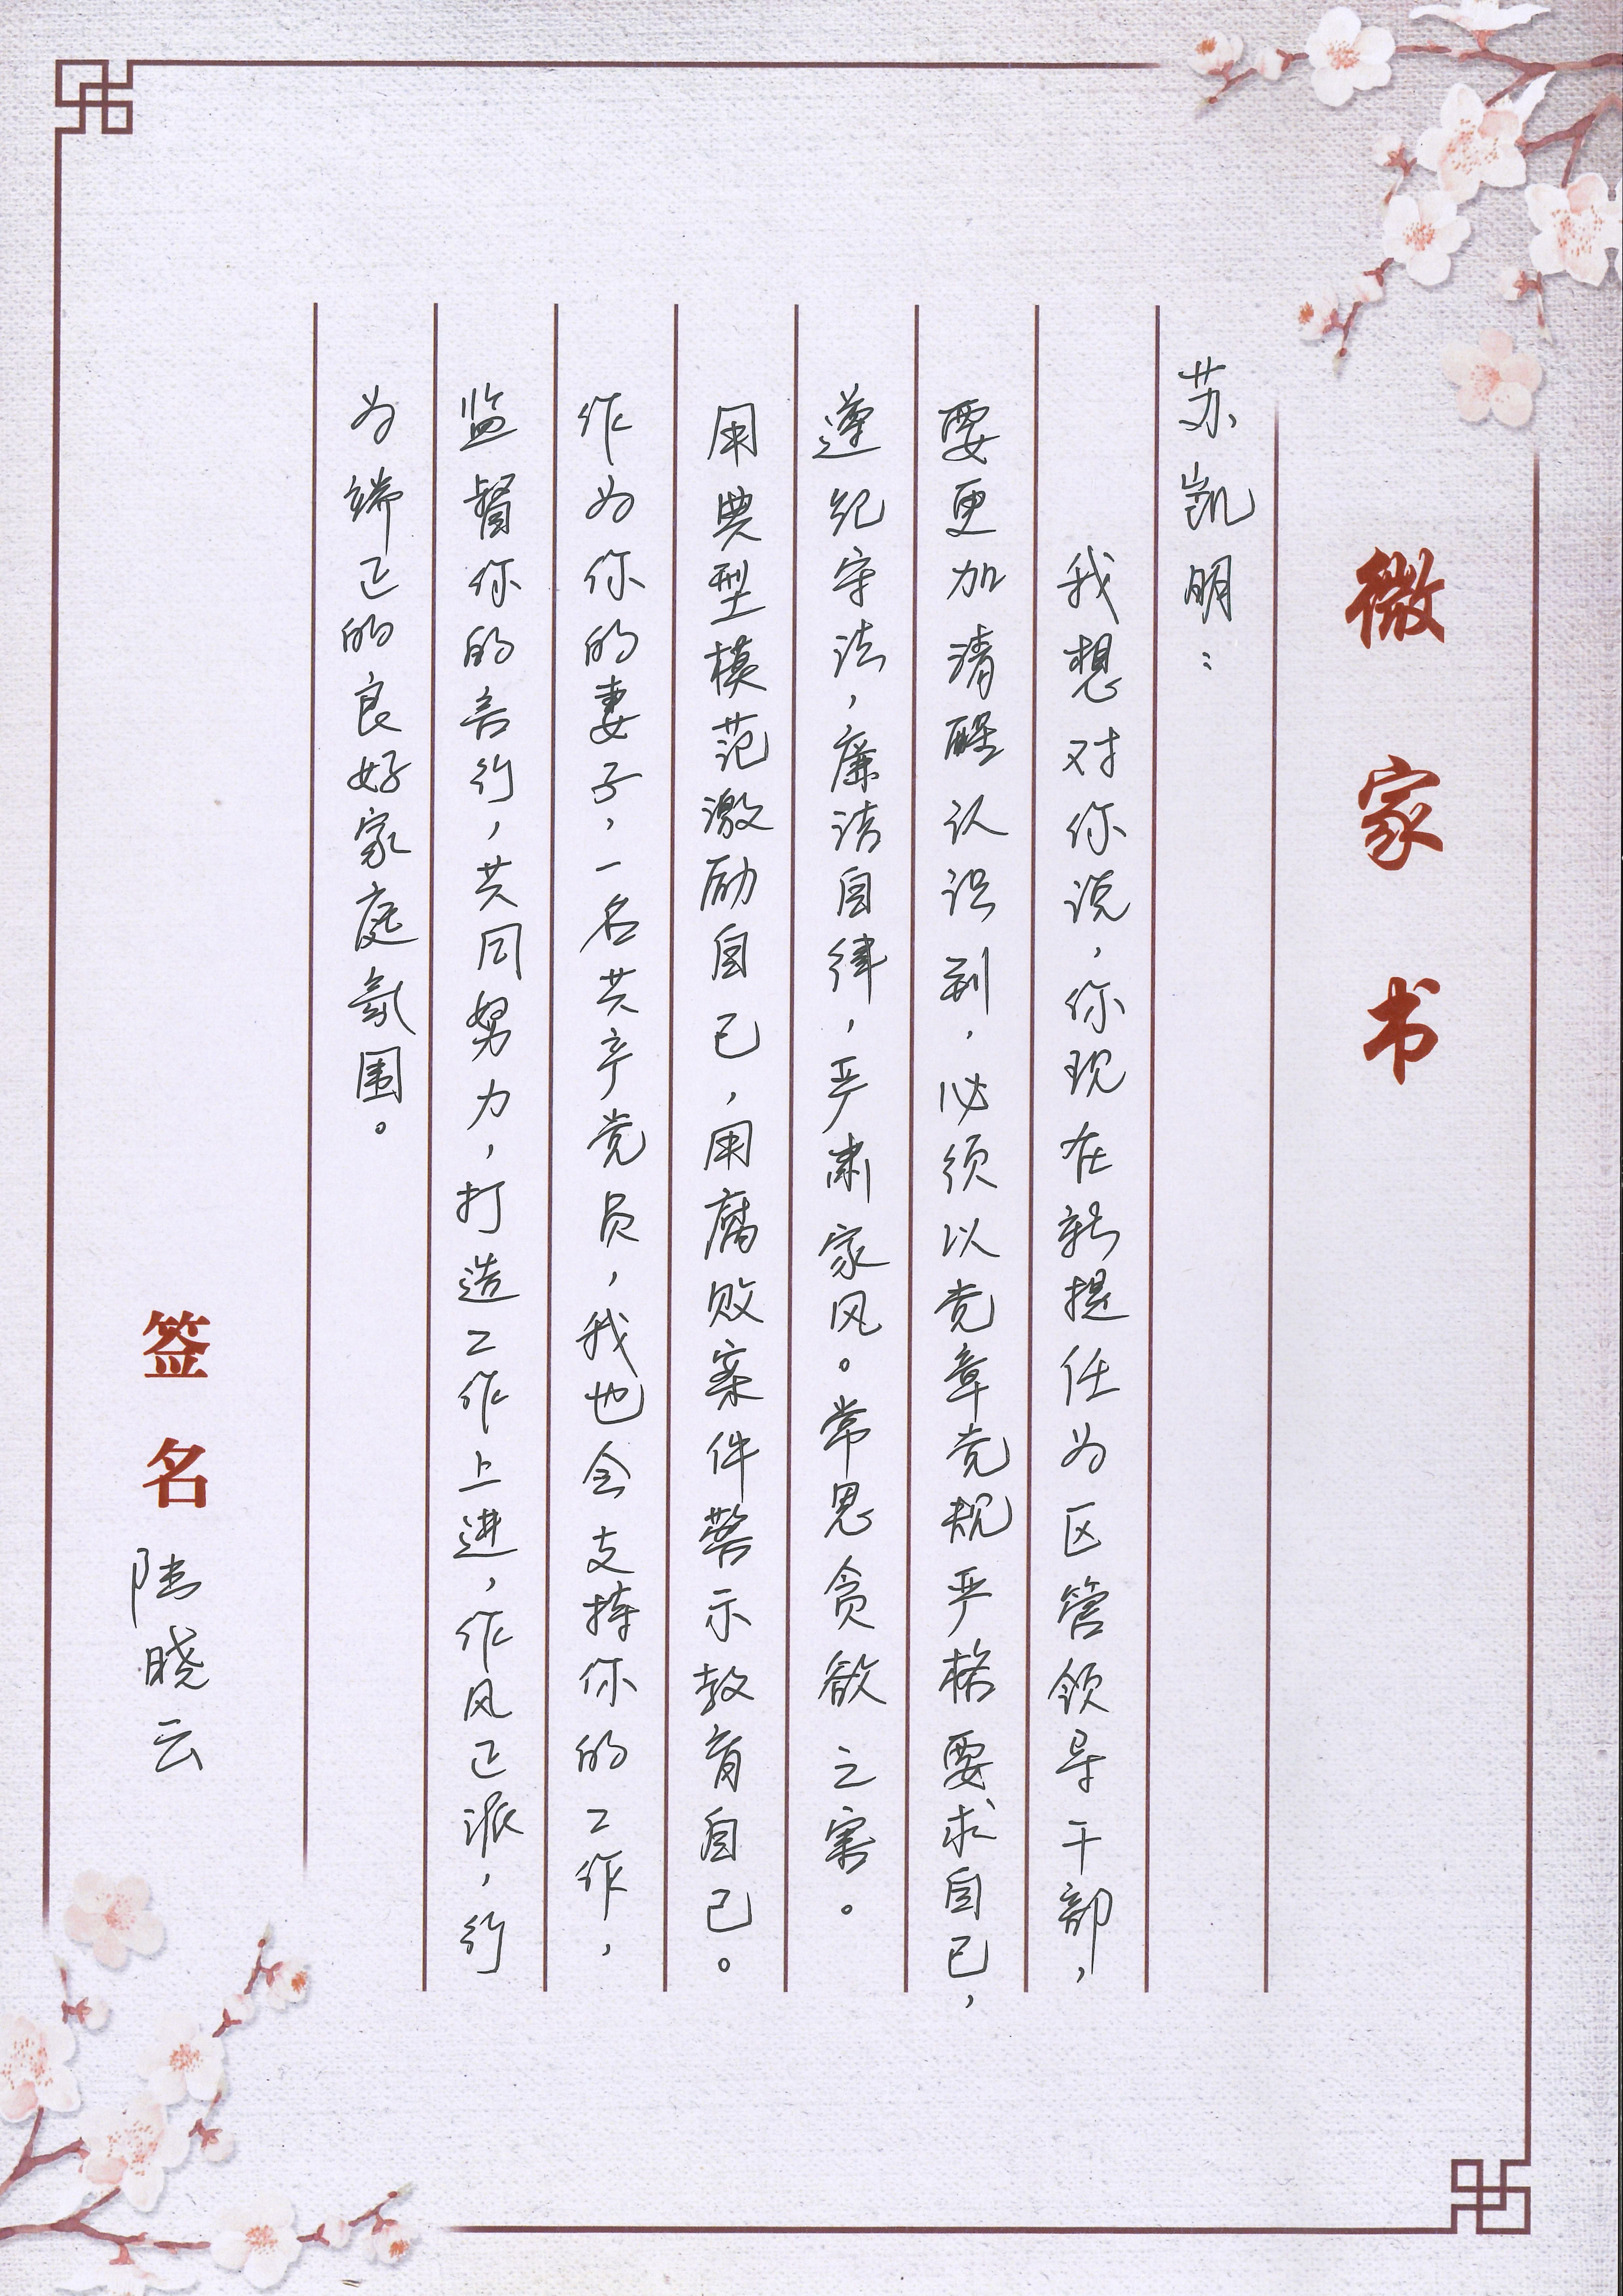 微家书
苏凯明：
我想对你说，你现在新提任为区管领导干部，
要更加清醒认识到，必须以党章党规严格要求自己，
遵纪守法，廉洁自律，严肃家风。常思贪欲之害。
用典型模范激励自己，用腐败案件警示教育自己。
作为你的妻子，一名共产党员，我也会支持你的工作，
监督你的言行，共同努力，打造工作上进，作风正派，行
为端正的良好家庭氛围。
签名 陆晓云